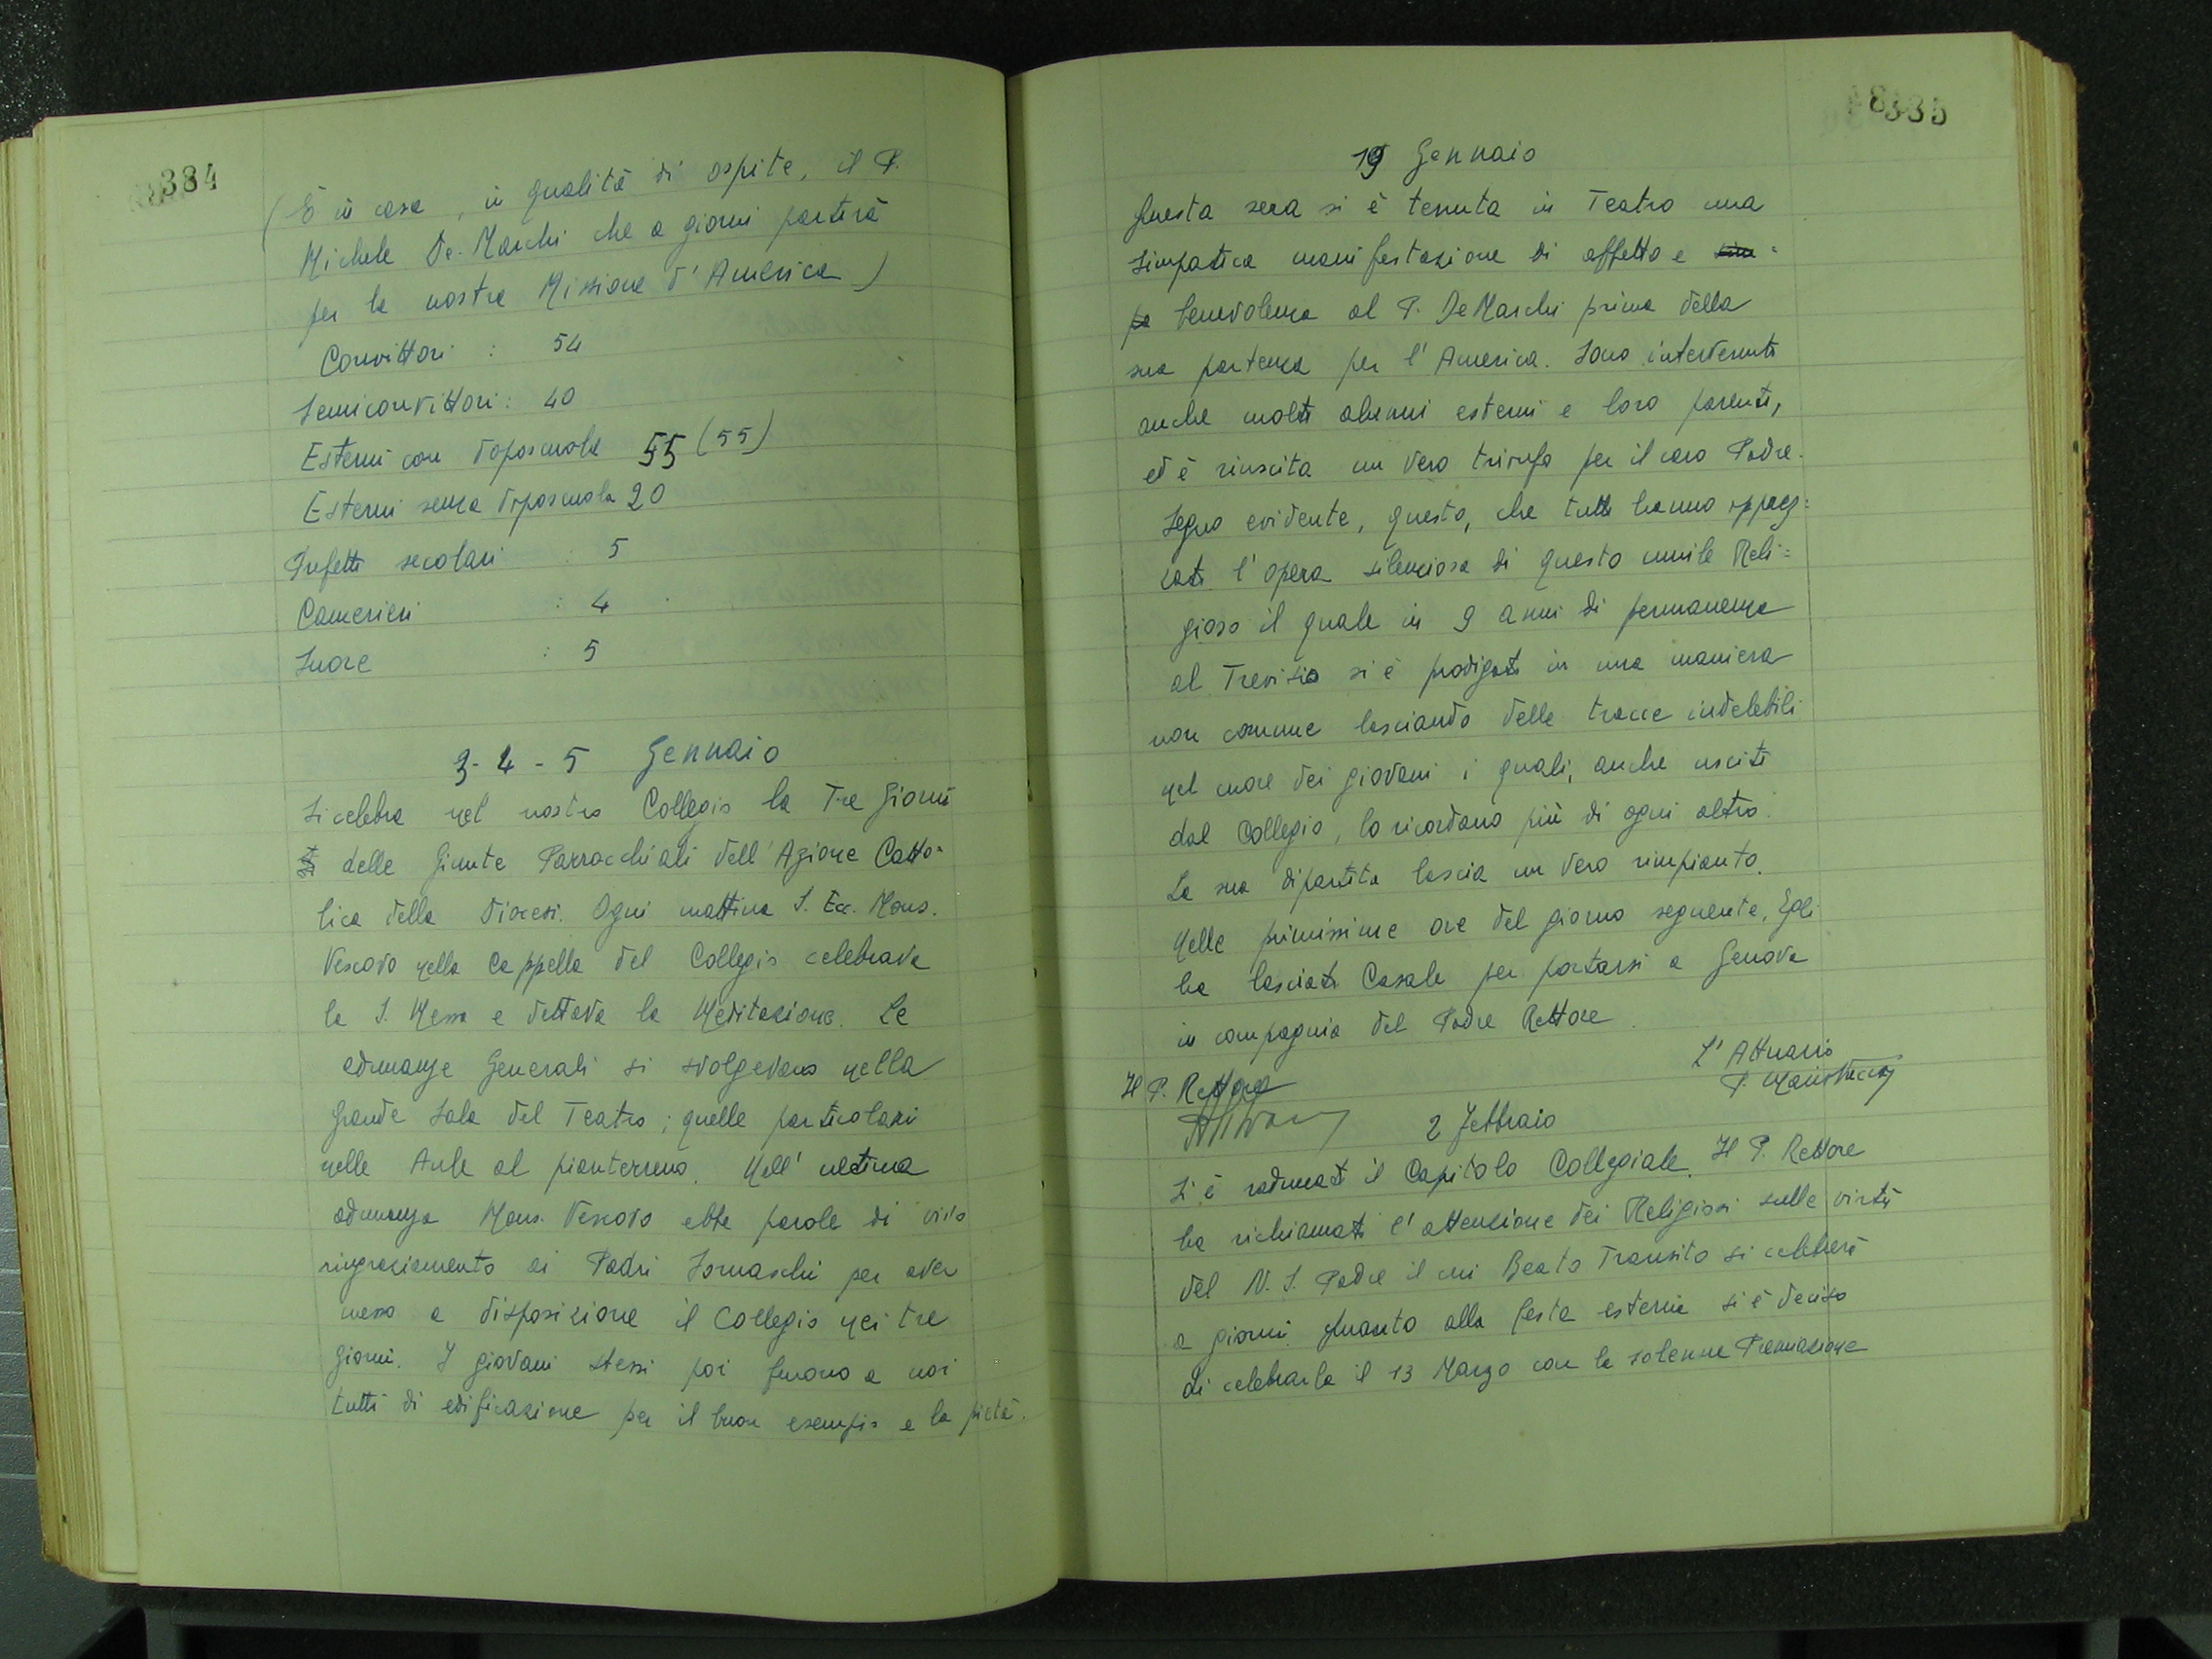 384
(È in casa, in qualità di ospite, il P.
Michele De-Marchi che a giorni partirà
per la nostra Missione d'America)
Convittori : 54
Semiconvittori : 40
Esterni con doposcuola 55 (55)
Esterni senza doposcuola 20
Prefetti secolari : 5
Camerieri : 4
Suore : 5
3-4-5 Gennaio
Si celebra nel nostro Collegio la Tre Giorni
delle Giunte Parrocchiali dell'Azione Catto=
lica della Diocesi. Ogni mattina S. Ecc. Mons.
Vescovo nella Cappella del Collegio celebrava
la S. Messa e dettava la Meditazione. Le
adunanze Generali si svolgevano nella
grande Sala del Teatro; quelle particolari
nelle Aule al pianterreno. Nell'ultima
adunanza Mons. Vescovo ebbe parole di vivo
ringraziamento ai Padri Somaschi per aver
messo a disposizione il Collegio nei tre
giorni. I giovani stessi poi furono a noi
tutti di edificazione per il buon esempio e la pietà.
385
19 Gennaio
Questa sera si è tenuta in Teatro una
simpatica manifestazione di affetto e sim=
pa benevolenza al P. De Marchi prima della
sua partenza per l'America. Sono intervenuti
anche molti alunni esterni e loro parenti,
ed è riuscita un vero trionfo per il caro Padre.
Segno evidente, questo, che tutti hanno apprez=
zato l'opera silenziosa di questo umile Reli=
gioso il quale in 9 anni di permanenza
al Trevisio si è prodigato in una maniera
non comune lasciando delle tracce indelebili
nel cuore dei giovani i quali, anche usciti
dal Collegio, lo ricordano più di ogni altro.
La sua dipartita lascia un vero rimpianto.
Nelle primissime ore del giorno seguente, Egli
ha lasciato Casale per portarsi a Genova
in compagnia del Padre Rettore.
L'Attuario
P.
Il P. Rettore
2 Febbraio
Si è radunato il Capitolo Collegiale. Il P. Rettore
ha richiamato l'attenzione dei Religiosi sulle virtù
del N. S. Padre il cui Beato Transito si celebrerà
a giorni. Quanto alla festa esterna si è deciso
di celebrarla il 13 Marzo con la solenne Premiazione